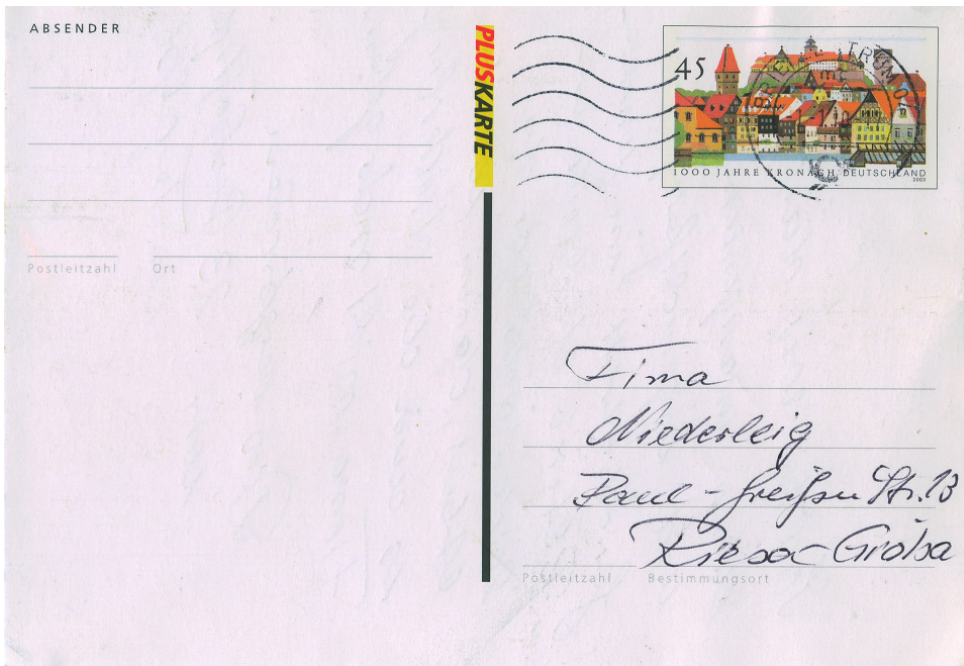 ABSENDER
Postleitzahl Ort
PLUSKARTE
45
1000 JAHRE KRONACH DEUTSCHLAND
2003
Firma
Niederleig
Paul-Greifzu Str. 13
Riesa-Gröba
Postleitzahl Bestimmungsort